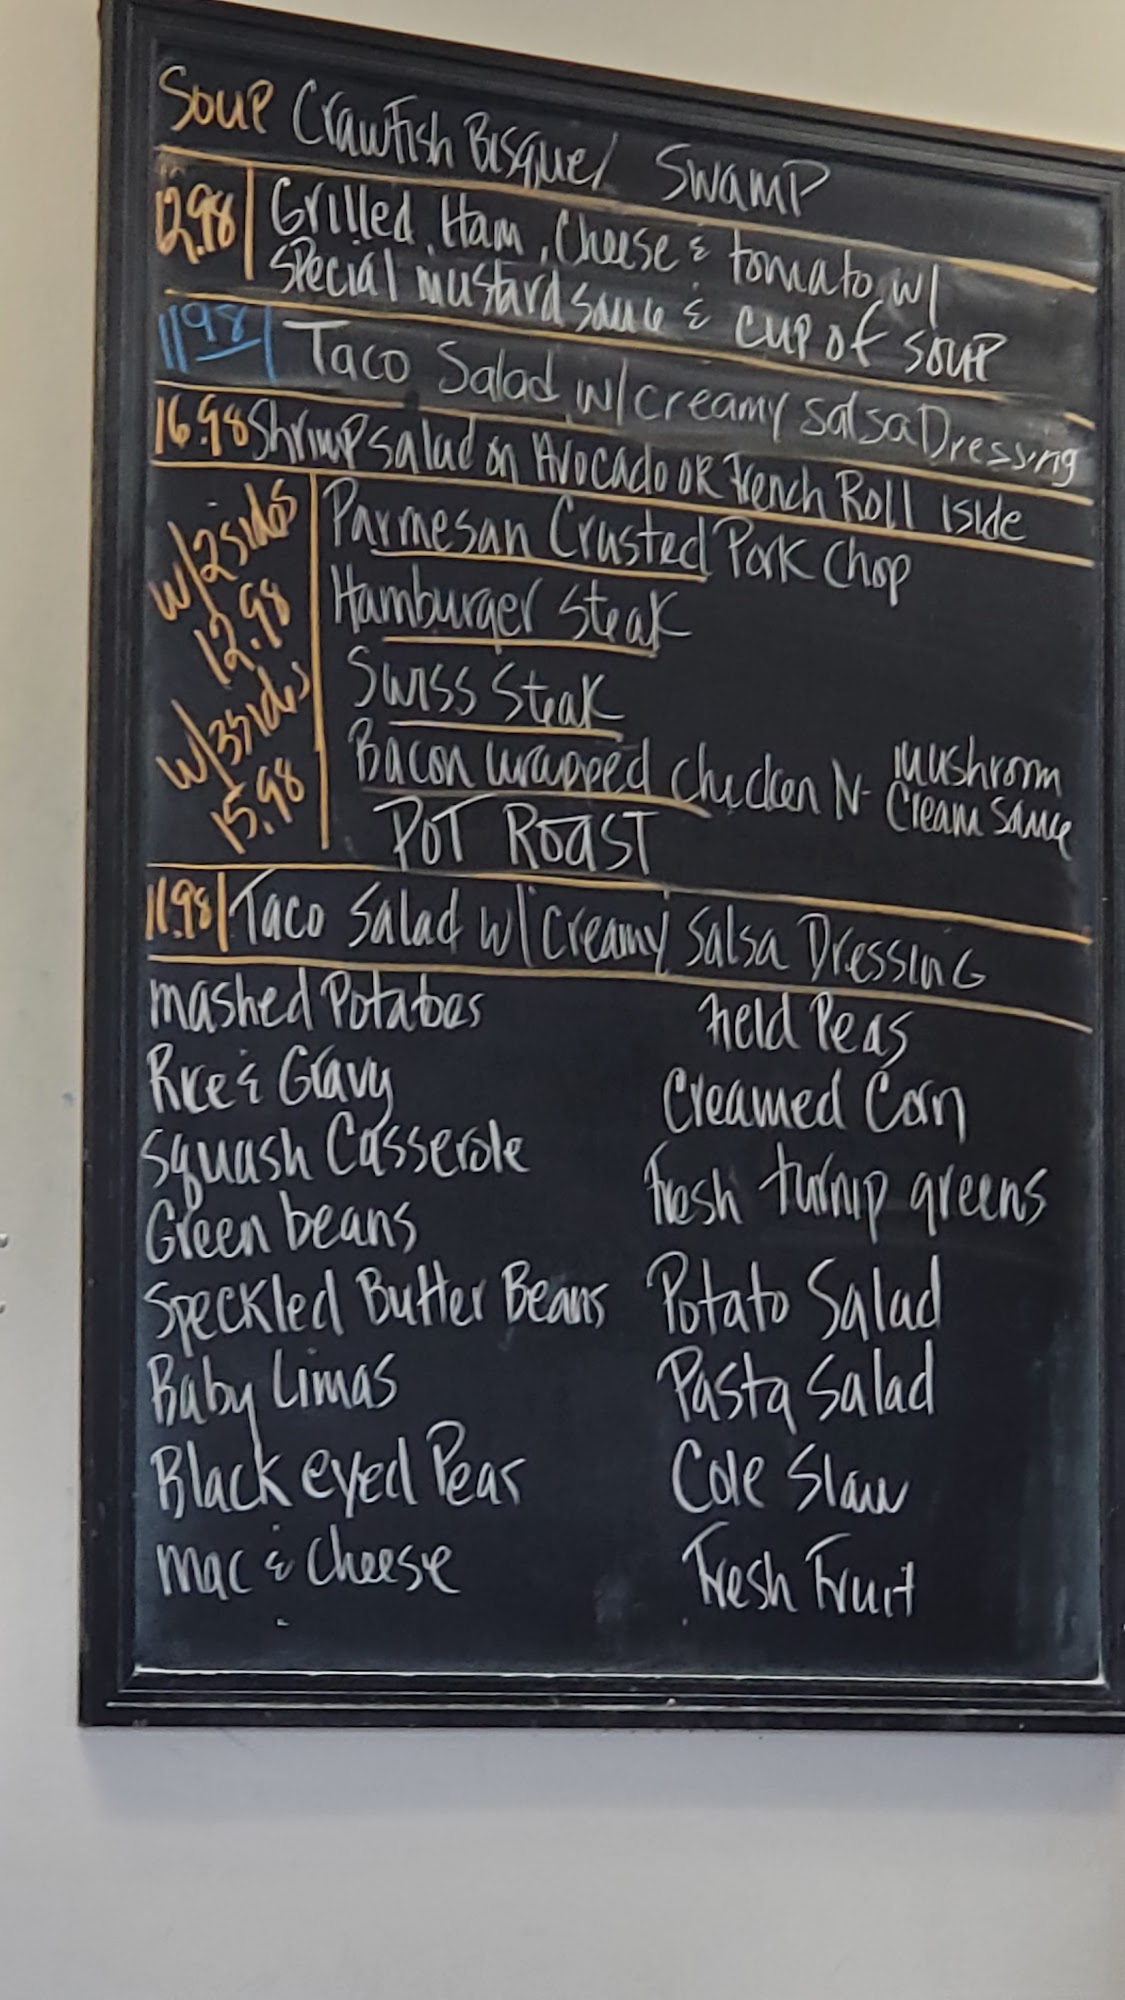 Soup Crawfish Bisque/ Swamp
12.98 | Grilled, Ham, Cheese & tomato w/
special mustard sauce & cup of soup
11.98 | Taco Salad w/creamy salsa Dressing
16.98 Shrimp salad on Avocado or French Roll 1side
w/2 sides
12.98
w/3sides
15.98
Parmesan Crusted Pork Chop
Hamburger Steak
Swiss Steak
Bacon wrapped chicken N- mushroom
Cream sauce
POT ROAST
11.98 | Taco Salad w/creamy Salsa Dressing
mashed Potatoes
Rice & Gravy
Squash Casserole
Green beans
Speckled Butter Beans
Baby Limas
Black eyed Peas
mac & cheese
field Peas
Creamed Corn
fresh turnip greens
Potato Salad
Pasta Salad
Cole Slaw
Fresh Fruit